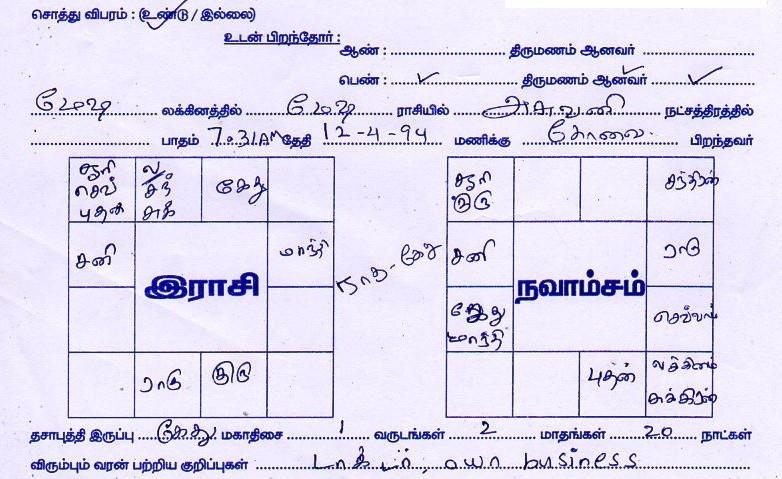 சொத்து விபரம் : (உண்டு / இல்லை)
உடன் பிறந்தோர் :
ஆண் : திருமணம் ஆனவர்
பெண் : ✓ திருமணம் ஆனவர் ✓
மேஷ லக்கினத்தில் மேஷ ராசியில் அசுவனி நட்சத்திரத்தில்
பாதம் 7.31AM தேதி 12-4-94 மணிக்கு கோவை பிறந்தவர்
சூரி செவ் புதன்
ல சந் சுக்
கேது
சனி
மாந்தி
இராசி
ராகு
குரு
சூரி குரு
சந்திரன்
சனி
ராகு
நவாம்சம்
கேது மாந்தி
செவ்வாய்
புதன்
லக்கினம் சுக்கிரன்
தசாபுத்தி இருப்பு கேது மகாதிசை 1 வருடங்கள் 2 மாதங்கள் 20 நாட்கள்
விரும்பும் வரன் பற்றிய குறிப்புகள் டாக்டர், business